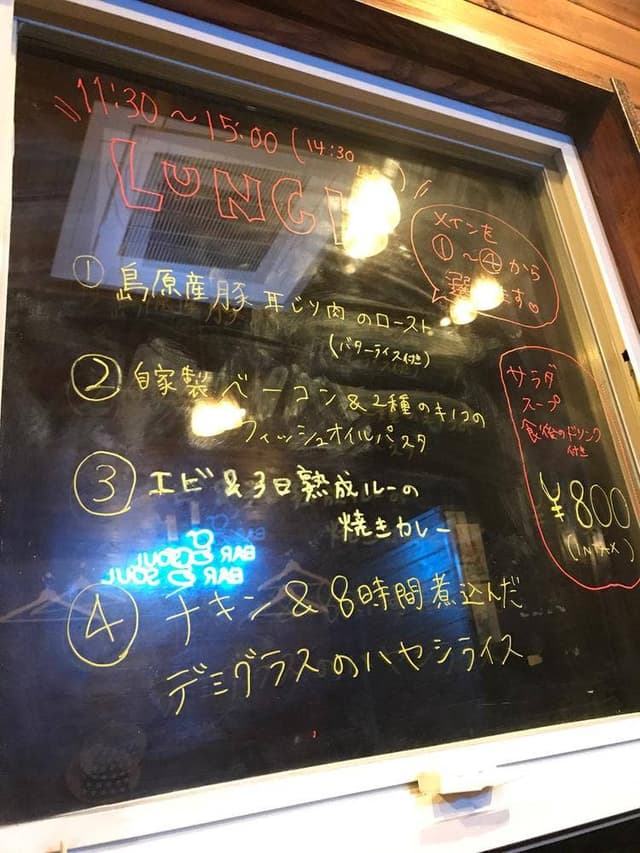 11:30～15:00(14:30
LUNCH
メインを
①～④から
選 ます♡
① 島原産豚 耳じり肉のロースト
(バターライス付き)
② 自家製ベーコン&2種のキノコの
フィッシュオイルパスタ
③ エビ&3日熟成ルーの
焼きカレー
④ チキン&8時間煮込んだ
デミグラスのハヤシライス
サラダ
スープ
食後のドリンク
付き
¥800
(INTAX)
BAR D SOUL
BAR D SOUL